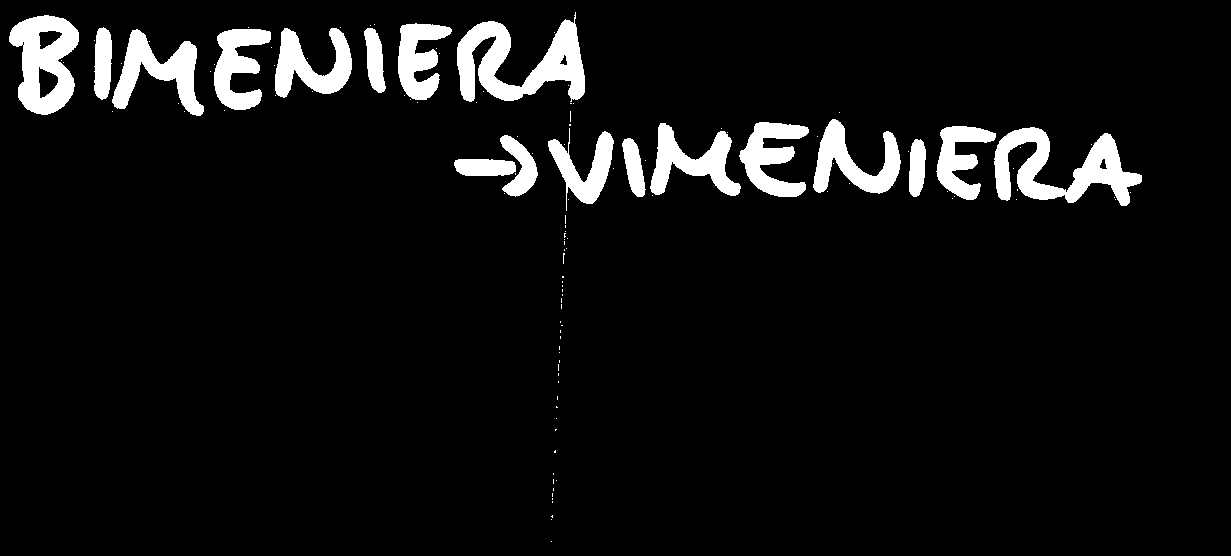 BIMENIERA
→VIMENIERA